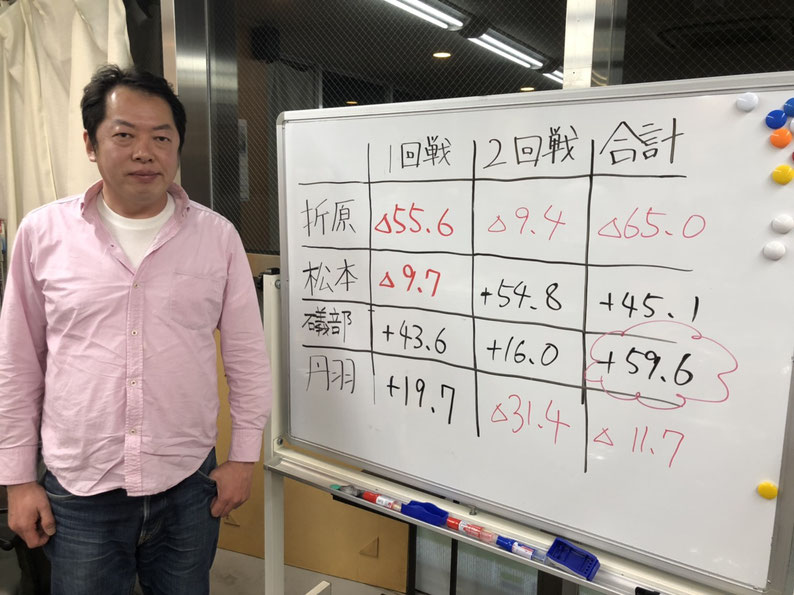 1回戦 2回戦 合計
折原 △55.6 △9.4 △65.0
松本 △9.7 +54.8 +45.1
礒部 +43.6 +16.0 +59.6
丹羽 +19.7 △31.4 △11.7